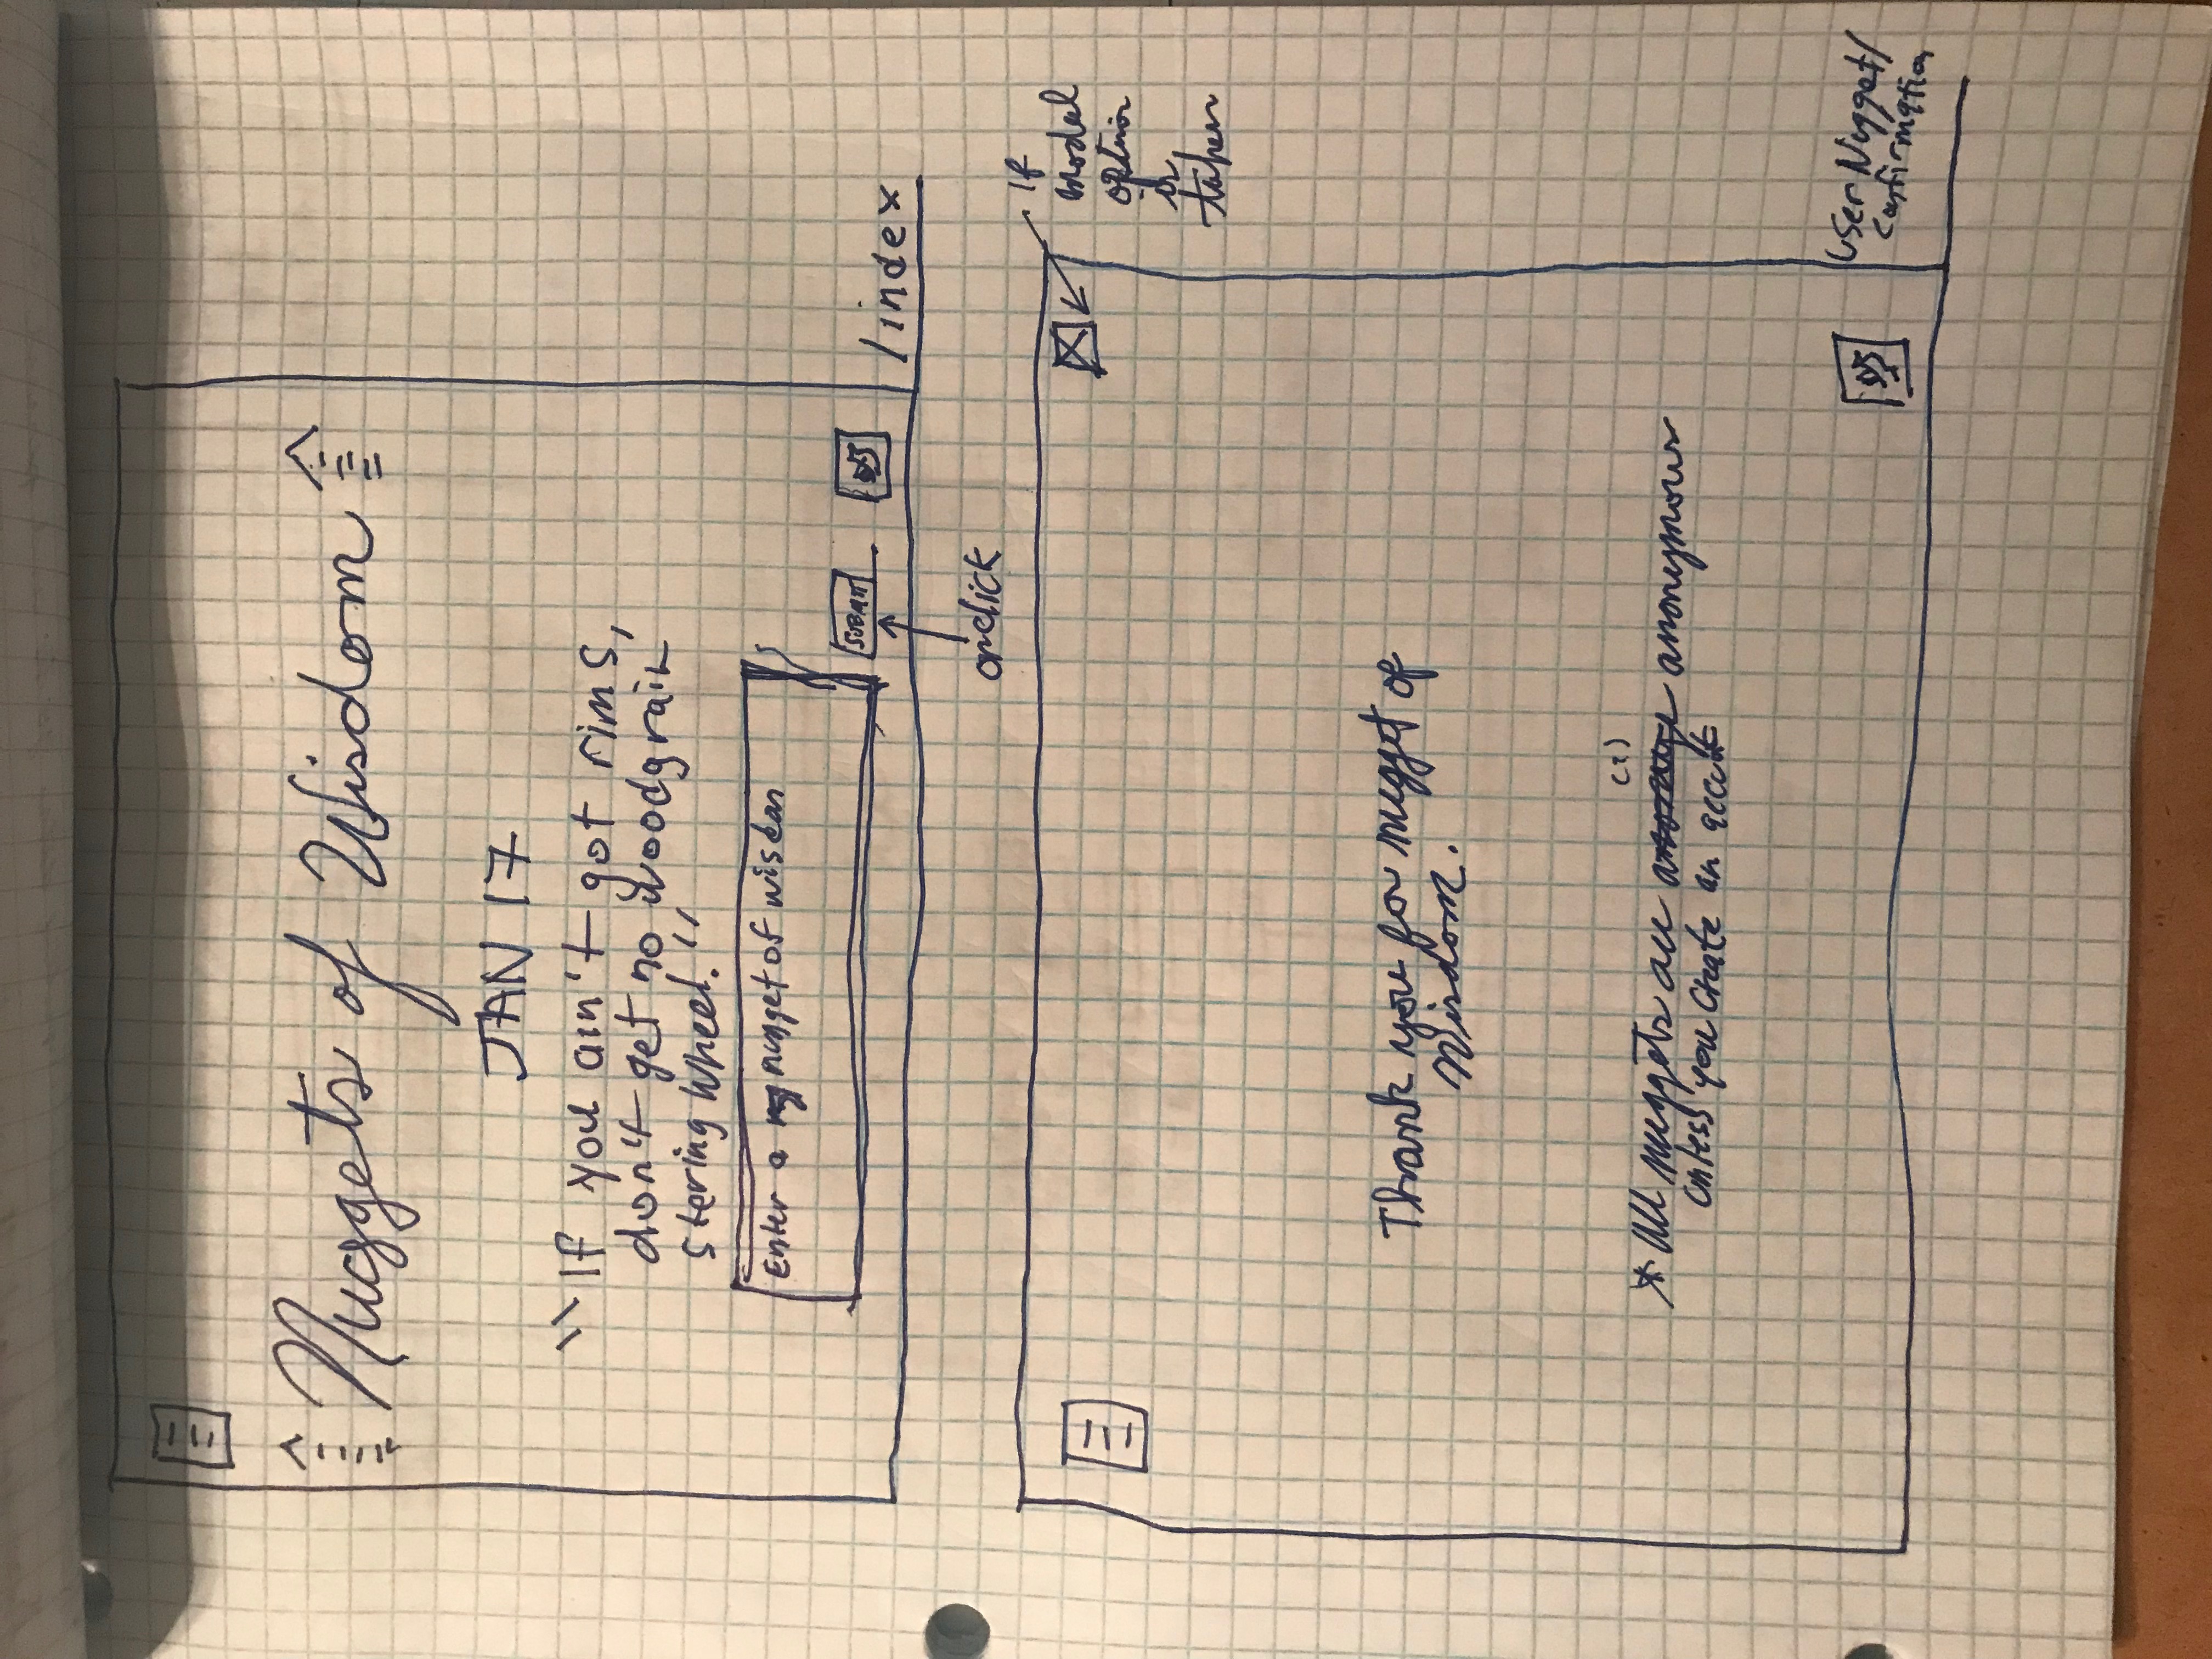 Nuggets of Wisdom
JAN 17
"If you ain't got rims,
don't get no woodgrain
stering wheel."
Enter a nugget of wisdom
SUBMIT
/index
onclick
If
modal
option
is
taken
Thank you for nugget of
Wisdom.
(?)
* All nuggets are anonymous
unless you create an account
User Nugget/
Confirmation